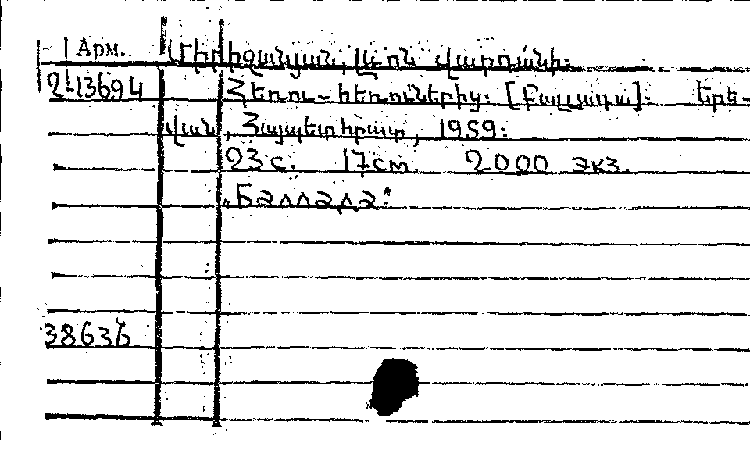 Арм. Միրիջանյան, Լևոն Վարդանի:
Հեռու-հեռուներից: [Բալլադա]: Երե-
վան, Հայպետհրատ, 1959:
23 с. 17 см. 2000 экз.
„Баллада:"